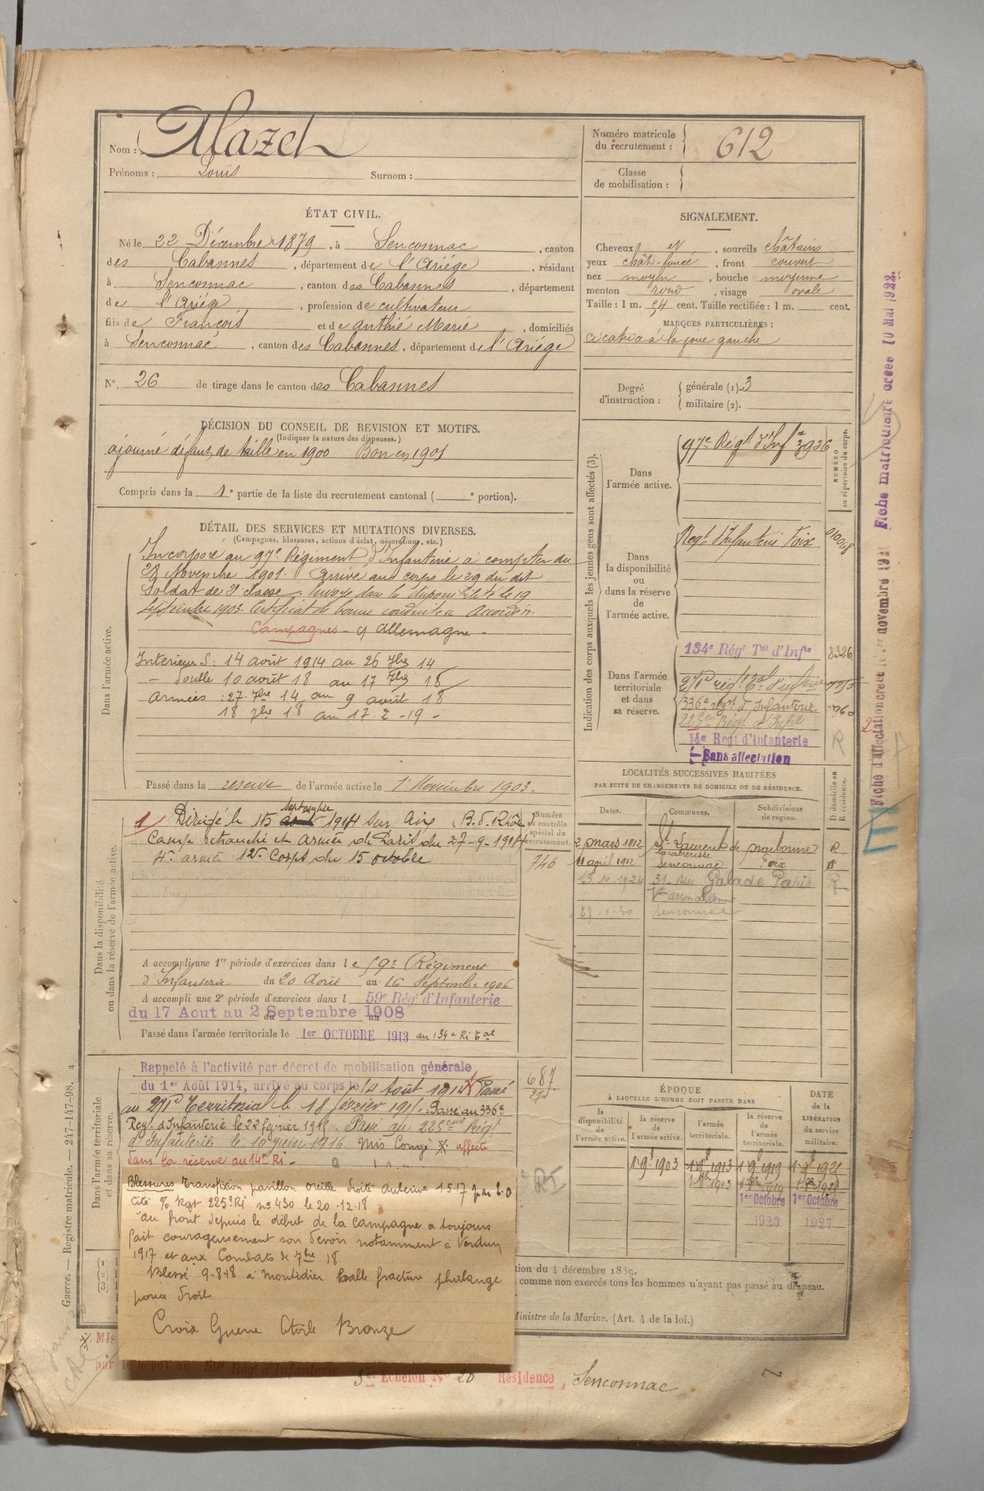 Nom : Mazel
Prénoms : Louis Surnom :
Numéro matricule du recrutement : 612
Classe de mobilisation :
ÉTAT CIVIL.
Né le 22 Décembre 1879, à Senconnac, canton
des Cabannes, département de l'Ariége, résidant
à Senconnac, canton des Cabannes, département
de l'Ariége, profession de cultivateur
fils de François et de Authié Marie, domiciliés
à Senconnac, canton des Cabannes, département de l'Ariége
N° 26 de tirage dans le canton des Cabannes
DÉCISION DU CONSEIL DE REVISION ET MOTIFS.
(Indiquer la nature des dispenses.)
ajourné défaut de taille en 1900 Bon en 1901
Compris dans la 1e partie de la liste du recrutement cantonal ( e portion).
SIGNALEMENT.
Cheveux et, sourcils châtains
yeux chât. foncé, front couvert
nez moyen, bouche moyenne
menton rond, visage ovale
Taille : 1 m. 54 cent. Taille rectifiée : 1 m. cent.
MARQUES PARTICULIÈRES :
cicatrice à la joue gauche
Degré d'instruction : générale (1). 3
militaire (2).
DÉTAIL DES SERVICES ET MUTATIONS DIVERSES.
(Campagnes, blessures, actions d'éclat, décorations, etc.)
Dans l'armée active.
Incorporé au 97e Régiment d'Infanterie à compter du
Novembre 1901. Arrivé au corps le 29 du dit
Soldat de 2e classe. Envoyé dans la disponibilité le 19
Septembre 1903. Certificat de bonne conduite Accordé.
Campagnes - c/ Allemagne -
Intérieur S : 14 août 1914 au 26 7bre 14
- double 10 août 18 au 17 7bre 18
armées : 27 7bre 14 au 9 août 18
18 7bre 18 au 17-2-19 -
Passé dans la réserve de l'armée active le 1er Novembre 1903.
Indication des corps auxquels les jeunes gens sont affectés (3).
Dans l'armée active.
97e Regt d'Infie 3926
NUMÉRO au répertoire du corps.
Dans la disponibilité ou dans la réserve de l'armée active.
Regt d'Infanterie Foix
Dans l'armée territoriale et dans sa réserve.
134e Régt Tal d'Infie 8326
271e rég.
336e regt d'Infanterie
225e Regt d'Infie
14e Regt d'Infanterie
Sans affectation
R
Dans la disponibilité ou dans la réserve de l'armée active.
1/ Dirigé le 15 septembre 1914 sur Aix B. d. Rhône
Camp retranché et armée de Paris du 27-9-1914
4e armée 12e Corps du 15 octobre
Numéro au contrôle spécial du recrutement.
746
A accompli une 1re période d'exercices dans le 59e Régiment
d'Infanterie du 20 Août au 16 Septembre 1906
A accompli une 2e période d'exercices dans l 59e Régt d'Infanterie
du 17 Aout au 2 Septembre 1908
Passé dans l'armée territoriale le 1er OCTOBRE 1913 au 134e Ri tal
LOCALITÉS SUCCESSIVES HABITÉES
PAR SUITE DE CHANGEMENTS DE DOMICILE OU DE RÉSIDENCE.
Dates. Communes. Subdivisions de région. D domicile ou R résidence.
2 mars 1912 St Laurent de la Cabrerisse Narbonne R
11 avril 1912 Senconnac Foix R
13.10.1926 31 rue Galande Paris R
Senconnac
Dans l'armée territoriale et dans sa réserve.
Rappelé à l'activité par décret de mobilisation générale
du 1er Août 1914, arrivé au corps le 14 Août 1914 Passé
au 271e Territorial le 18 janvier 1915 Passé au 336e
Regt d'Infanterie le 22 février 1915 - Passé au 225eme Régt
d'Infanterie le 10 juin 1916 Mis Congé X affecté
dans la réserve au 14e Ri -
687
Blessures Transfixion pavillon oreille droite
Cité O/ Regt 225e Ri n° 430 le 20-12-18
"au front depuis le début de la campagne a toujours
fait courageusement son devoir notamment à Verdun
1917 et aux Combats de 7bre 18
Blessé 9-8-18 à Montdidier balle fracture phalange
pouce droit
Croix Guerre Etoile Bronze
ÉPOQUE
À LAQUELLE L'HOMME DOIT PASSER DANS
la disponibilité de l'armée active. la réserve de l'armée active. l'armée territoriale. la réserve de l'armée territoriale. DATE de la LIBÉRATION du service militaire.
1.9.1903 1.9.1913 1.9.1919
1er Octobre 1920 1er Octobre 1927
ation du 4 décembre 1889.
comme non exercés tous les hommes n'ayant pas passé au drapeau.
Ministre de la Marine. (Art. 4 de la loi.)
Echelon N° 20 Résidence, Senconnac
Guerre. — Registre matricule. 247-147-98. 4
Fiche matriculaire créée 10 Mai 1922.